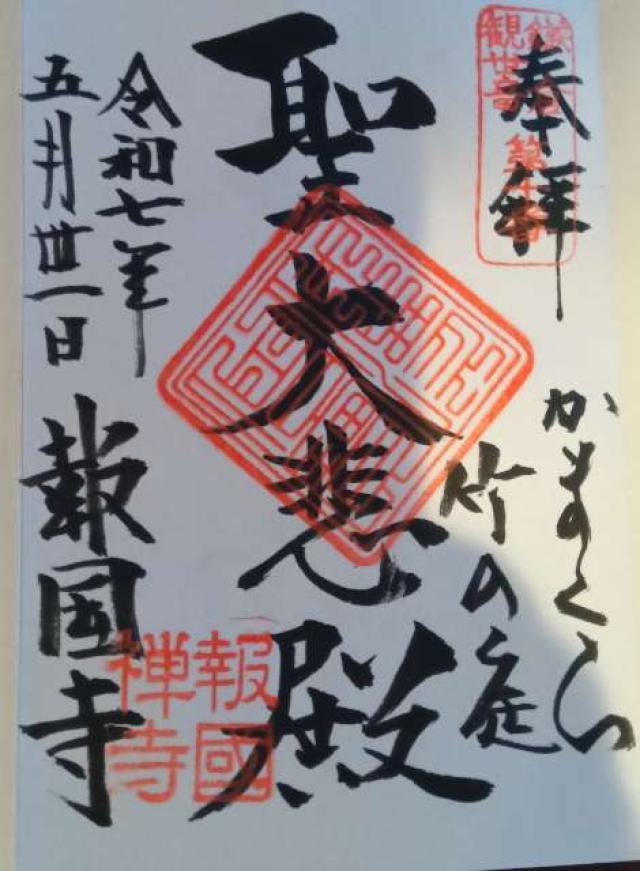 奉拝
鎌倉
観世音
第十番
かまくら
竹の庭
聖大悲殿
令和七年
五月丗一日
報国寺
報國
禅寺